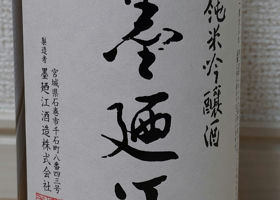 純米吟醸酒
墨廼江
宮城県石巻市千石町八番四三号
製造者 墨廼江酒造株式会社